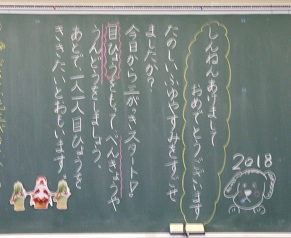 しんねんあけまして
おめでとうございます
たのしいふゆやすみをすごせ
ましたか?
今日から三がっきスタート!
目ひょうをもって、べんきょうや
うんどうをしましょう。
あとで一人一人目ひょうを
ききたいとおもいます。
2018